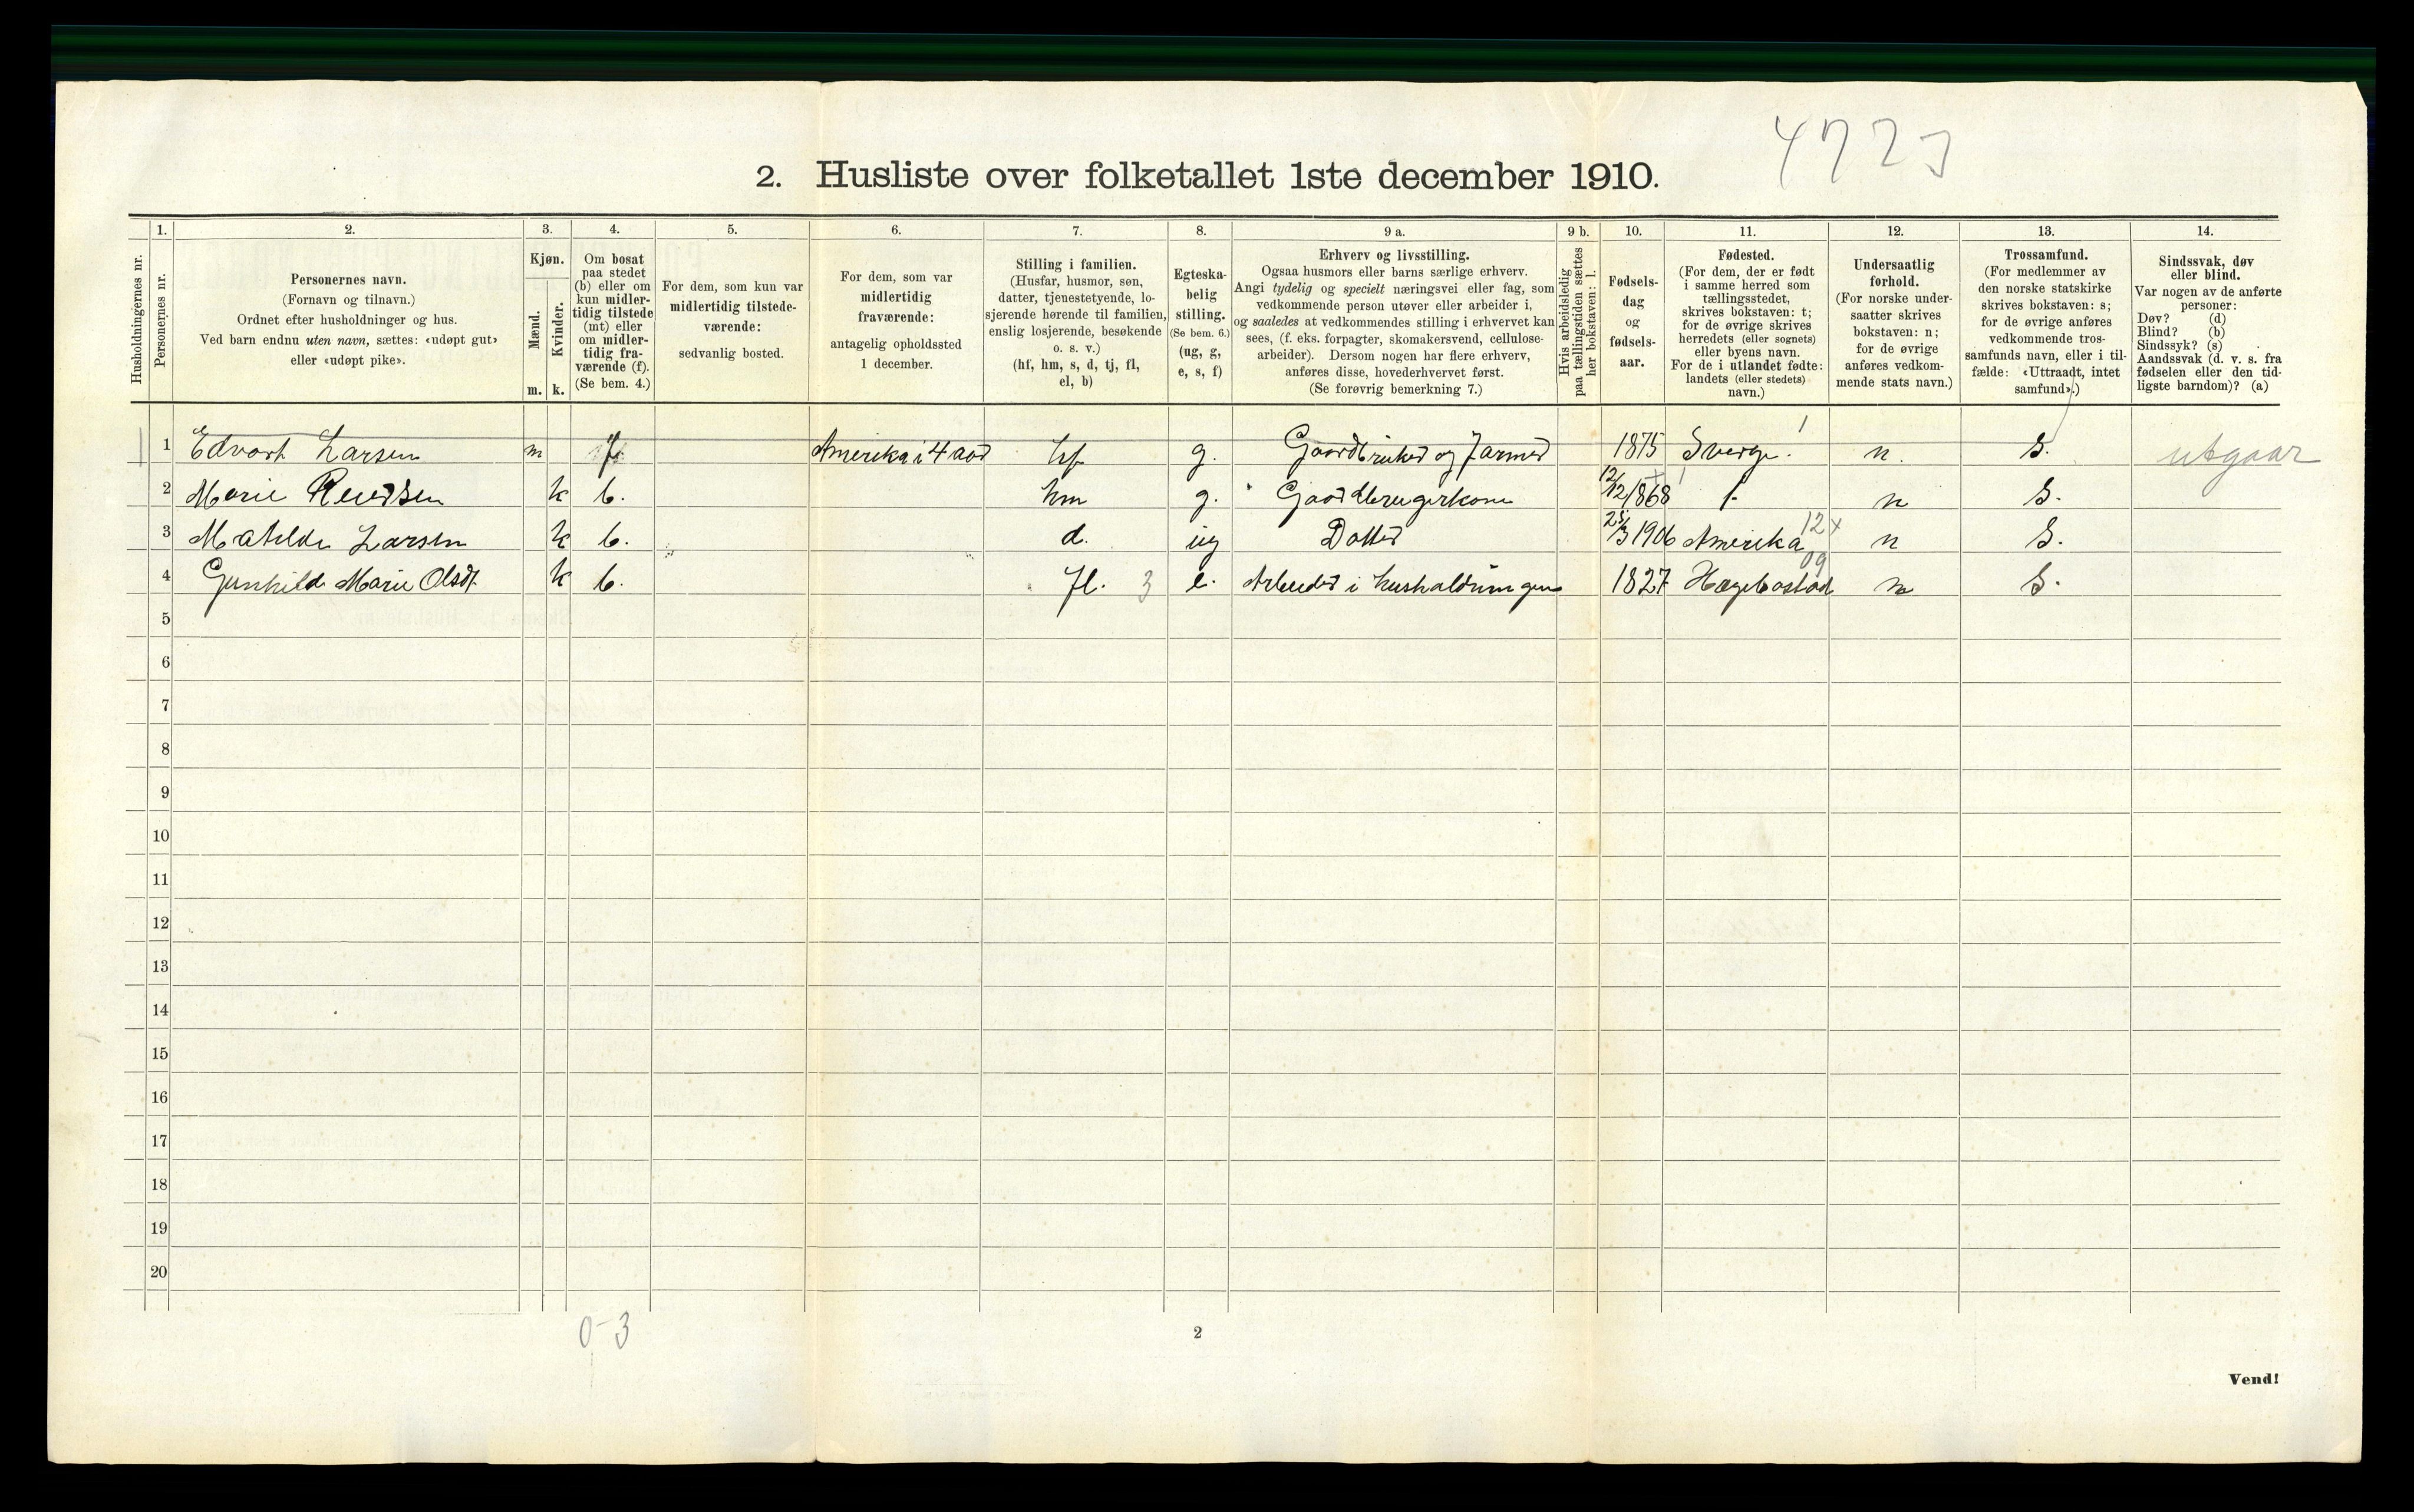 4723
2. Husliste over folketallet 1ste december 1910.
Husholdningernes nr.
1.
Personernes nr.
2.
Personernes navn.
(Fornavn og tilnavn.)
Ordnet efter husholdninger og hus.
Ved barn endnu uten navn, sættes: «udøpt gut»
eller «udøpt pike».
3.
Kjøn.
Mænd.
Kvinder.
m. k.
4.
Om bosat
paa stedet
(b) eller om
kun midler-
tidig tilstede
(mt) eller
om midler-
tidig fra-
værende (f).
(Se bem. 4.)
5.
For dem, som kun var
midlertidig tilstede-
værende:
sedvanlig bosted.
6.
For dem, som var
midlertidig
fraværende:
antagelig opholdssted
1 december.
7.
Stilling i familien.
(Husfar, husmor, søn,
datter, tjenestetyende, lo-
sjerende hørende til familien,
enslig losjerende, besøkende
o. s. v.)
(hf, hm, s, d, tj, fl,
el, b)
8.
Egteska-
belig
stilling.
(Se bem. 6.)
(ug, g,
e, s, f)
9 a.
Erhverv og livsstilling.
Ogsaa husmors eller barns særlige erhverv.
Angi tydelig og specielt næringsvei eller fag, som
vedkommende person utøver eller arbeider i,
og saaledes at vedkommendes stilling i erhvervet kan
sees, (f. eks. forpagter, skomakersvend, cellulose-
arbeider). Dersom nogen har flere erhverv,
anføres disse, hovederhvervet først.
(Se forøvrig bemerkning 7.)
9 b.
Hvis arbeidsledig
paa tællingstiden sættes
her bokstaven: l.
10.
Fødsels-
dag
og
fødsels-
aar.
11.
Fødested.
(For dem, der er født
i samme herred som
tællingsstedet,
skrives bokstaven: t;
for de øvrige skrives
herredets (eller sognets)
eller byens navn.
For de i utlandet fødte:
landets (eller stedets)
navn.)
12.
Undersaatlig
forhold.
(For norske under-
saatter skrives
bokstaven: n;
for de øvrige
anføres vedkom-
mende stats navn.)
13.
Trossamfund.
(For medlemmer av
den norske statskirke
skrives bokstaven: s;
for de øvrige anføres
vedkommende tros-
samfunds navn, eller i til-
fælde: «Uttraadt, intet
samfund».)
14.
Sindssvak, døv
eller blind.
Var nogen av de anførte
personer:
Døv? (d)
Blind? (b)
Sindssyk? (s)
Aandssvak (d. v. s. fra
fødselen eller den tid-
ligste barndom)? (a)
1 Edvart Larsen m f Amerika i 4 aar hf g. Gaardbruker og Farmer 1875 Sverge. 1 n. S. utgaar
2 Marie k b. hm g. Gaardbrugerkone 12/12 1868 t. n S.
3 Matelde Larsen k b. d. ug Datter 25/3 1906 Amerika 12 x n S.
4 Gunhild Marie Olsdt. k b. fl. 3 e. Arbeider i husholdningen 1827 Hægebostad 09 n S.
5
6
7
8
9
10
11
12
13
14
15
16
17
18
19
20
0-3
2
Vend!